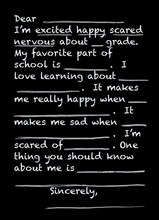 Dear ___________
I'm excited happy scared
nervous about __ grade.
My favorite part of
school is ________. I
love learning about _____
____________. It makes
me really happy when ___
________________. It
makes me sad when ___
______________. I'm
scared of ______. One
thing you should know
about me is _________
_____________________
Sincerely,
______________